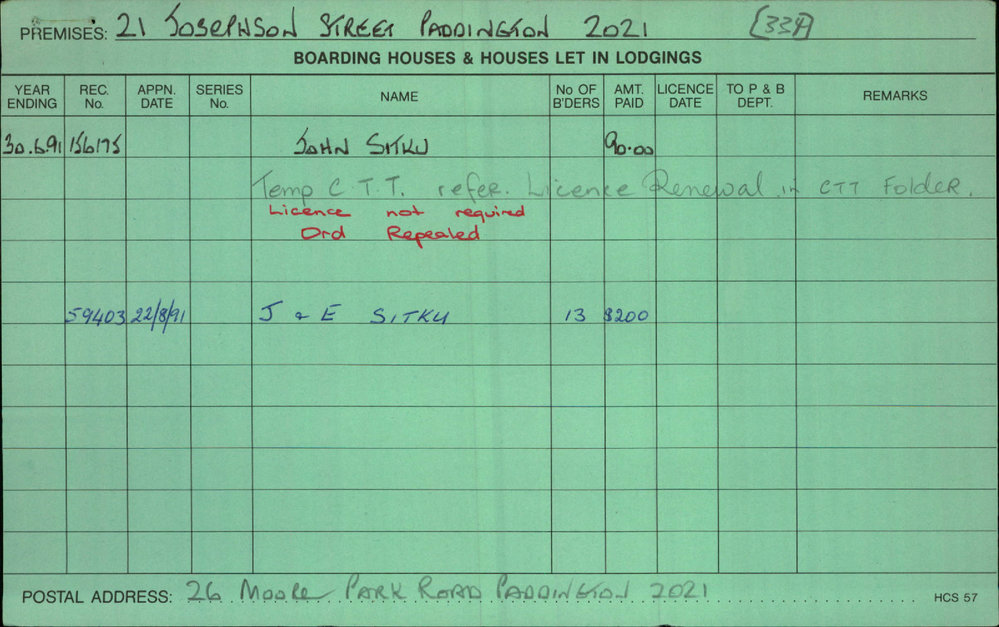 PREMISES: 21 JOSEPHSON STREET PADDINGTON 2021 [334]
BOARDING HOUSES & HOUSES LET IN LODGINGS
YEAR ENDING REC. No. APPN. DATE SERIES No. NAME No OF B'DERS AMT. PAID LICENCE DATE TO P & B DEPT. REMARKS
30.6.91 156175 JOHN SITKU 90.00
Temp C.T.T. refer. Licence Renewal in CTT Folder.
Licence not required
Ord Repealed
59403 22/8/91 J & E SITKU 13 $200
POSTAL ADDRESS: 26 MOORE PARK ROAD PADDINGTON 2021
HCS 57